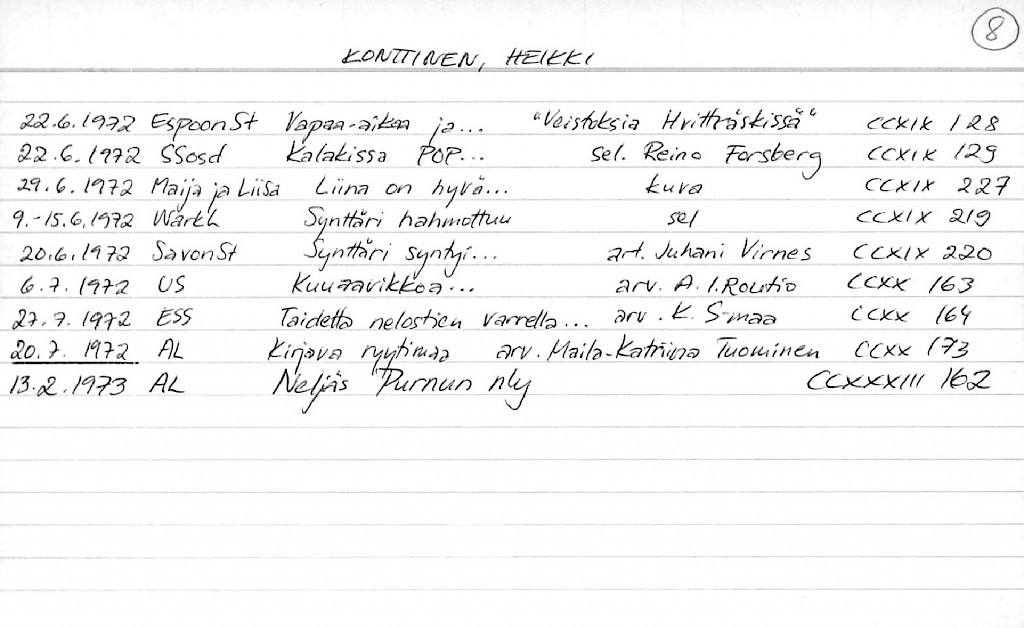 8
KONTTINEN, HEIKKI
22.6.1972 EspoonSt Vapaa-aikaa ja... "Veistoksia Hvitträskissä" CCXIX 128
22.6.1972 SSosd Kalakissa POP... sel. Reino Forsberg CCXIX 129
29.6.1972 Maija ja Liisa Liina on hyvä... kuva CCXIX 227
9.-15.6.1972 WarkL Synttäri hahmottuu sel CCXIX 219
20.6.1972 SavonSt Synttäri syntyi... art. Juhani Virnes CCXIX 220
6.7.1972 US Kuutaavikkoa... arv. A.I.Routio CCXX 163
27.7.1972 ESS Taidetta nelostien varrella... arv. K. S-maa CCXX 164
20.7.1972 AL Kirjava ryytimaa arv. Maila-Katriina Tuominen CCXX 173
13.2.1973 AL Neljäs Purnun nly CCXXXIII 162